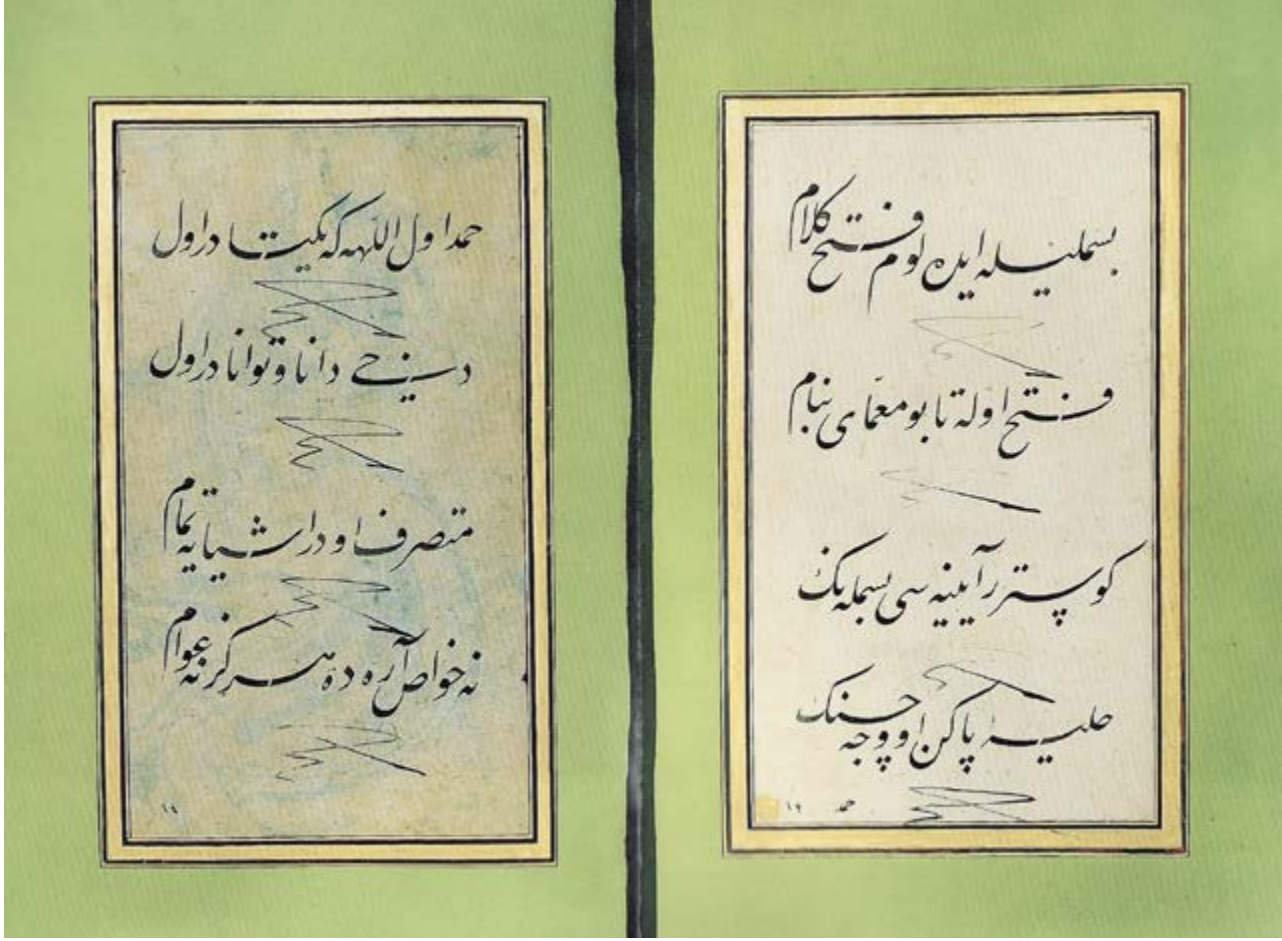 بسمله‌یله ایده‌لوم فتح کلام
فتح اوله تا بو معمّای بنام
کوسترر آیینه‌سی بسمله‌نک
حلیهٔ پاکن او وجه حسنک
حمد
١٩
حمد اول اللّهه که یکیتا در اول
دینی حی دانا و توانا در اول
متصرف او در اشیایه تمام
نه خواص آره ده هرگز نه عوام